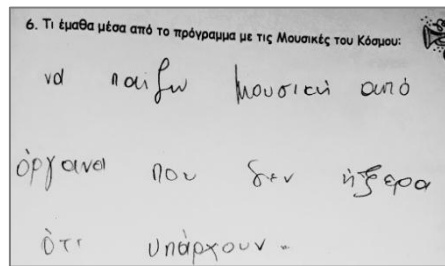 6. Τι έμαθα μέσα από το πρόγραμμα με τις Μουσικές του Κόσμου:
να παίζω μουσική από
όργανα που δεν ήξερα
ότι υπάρχουν.